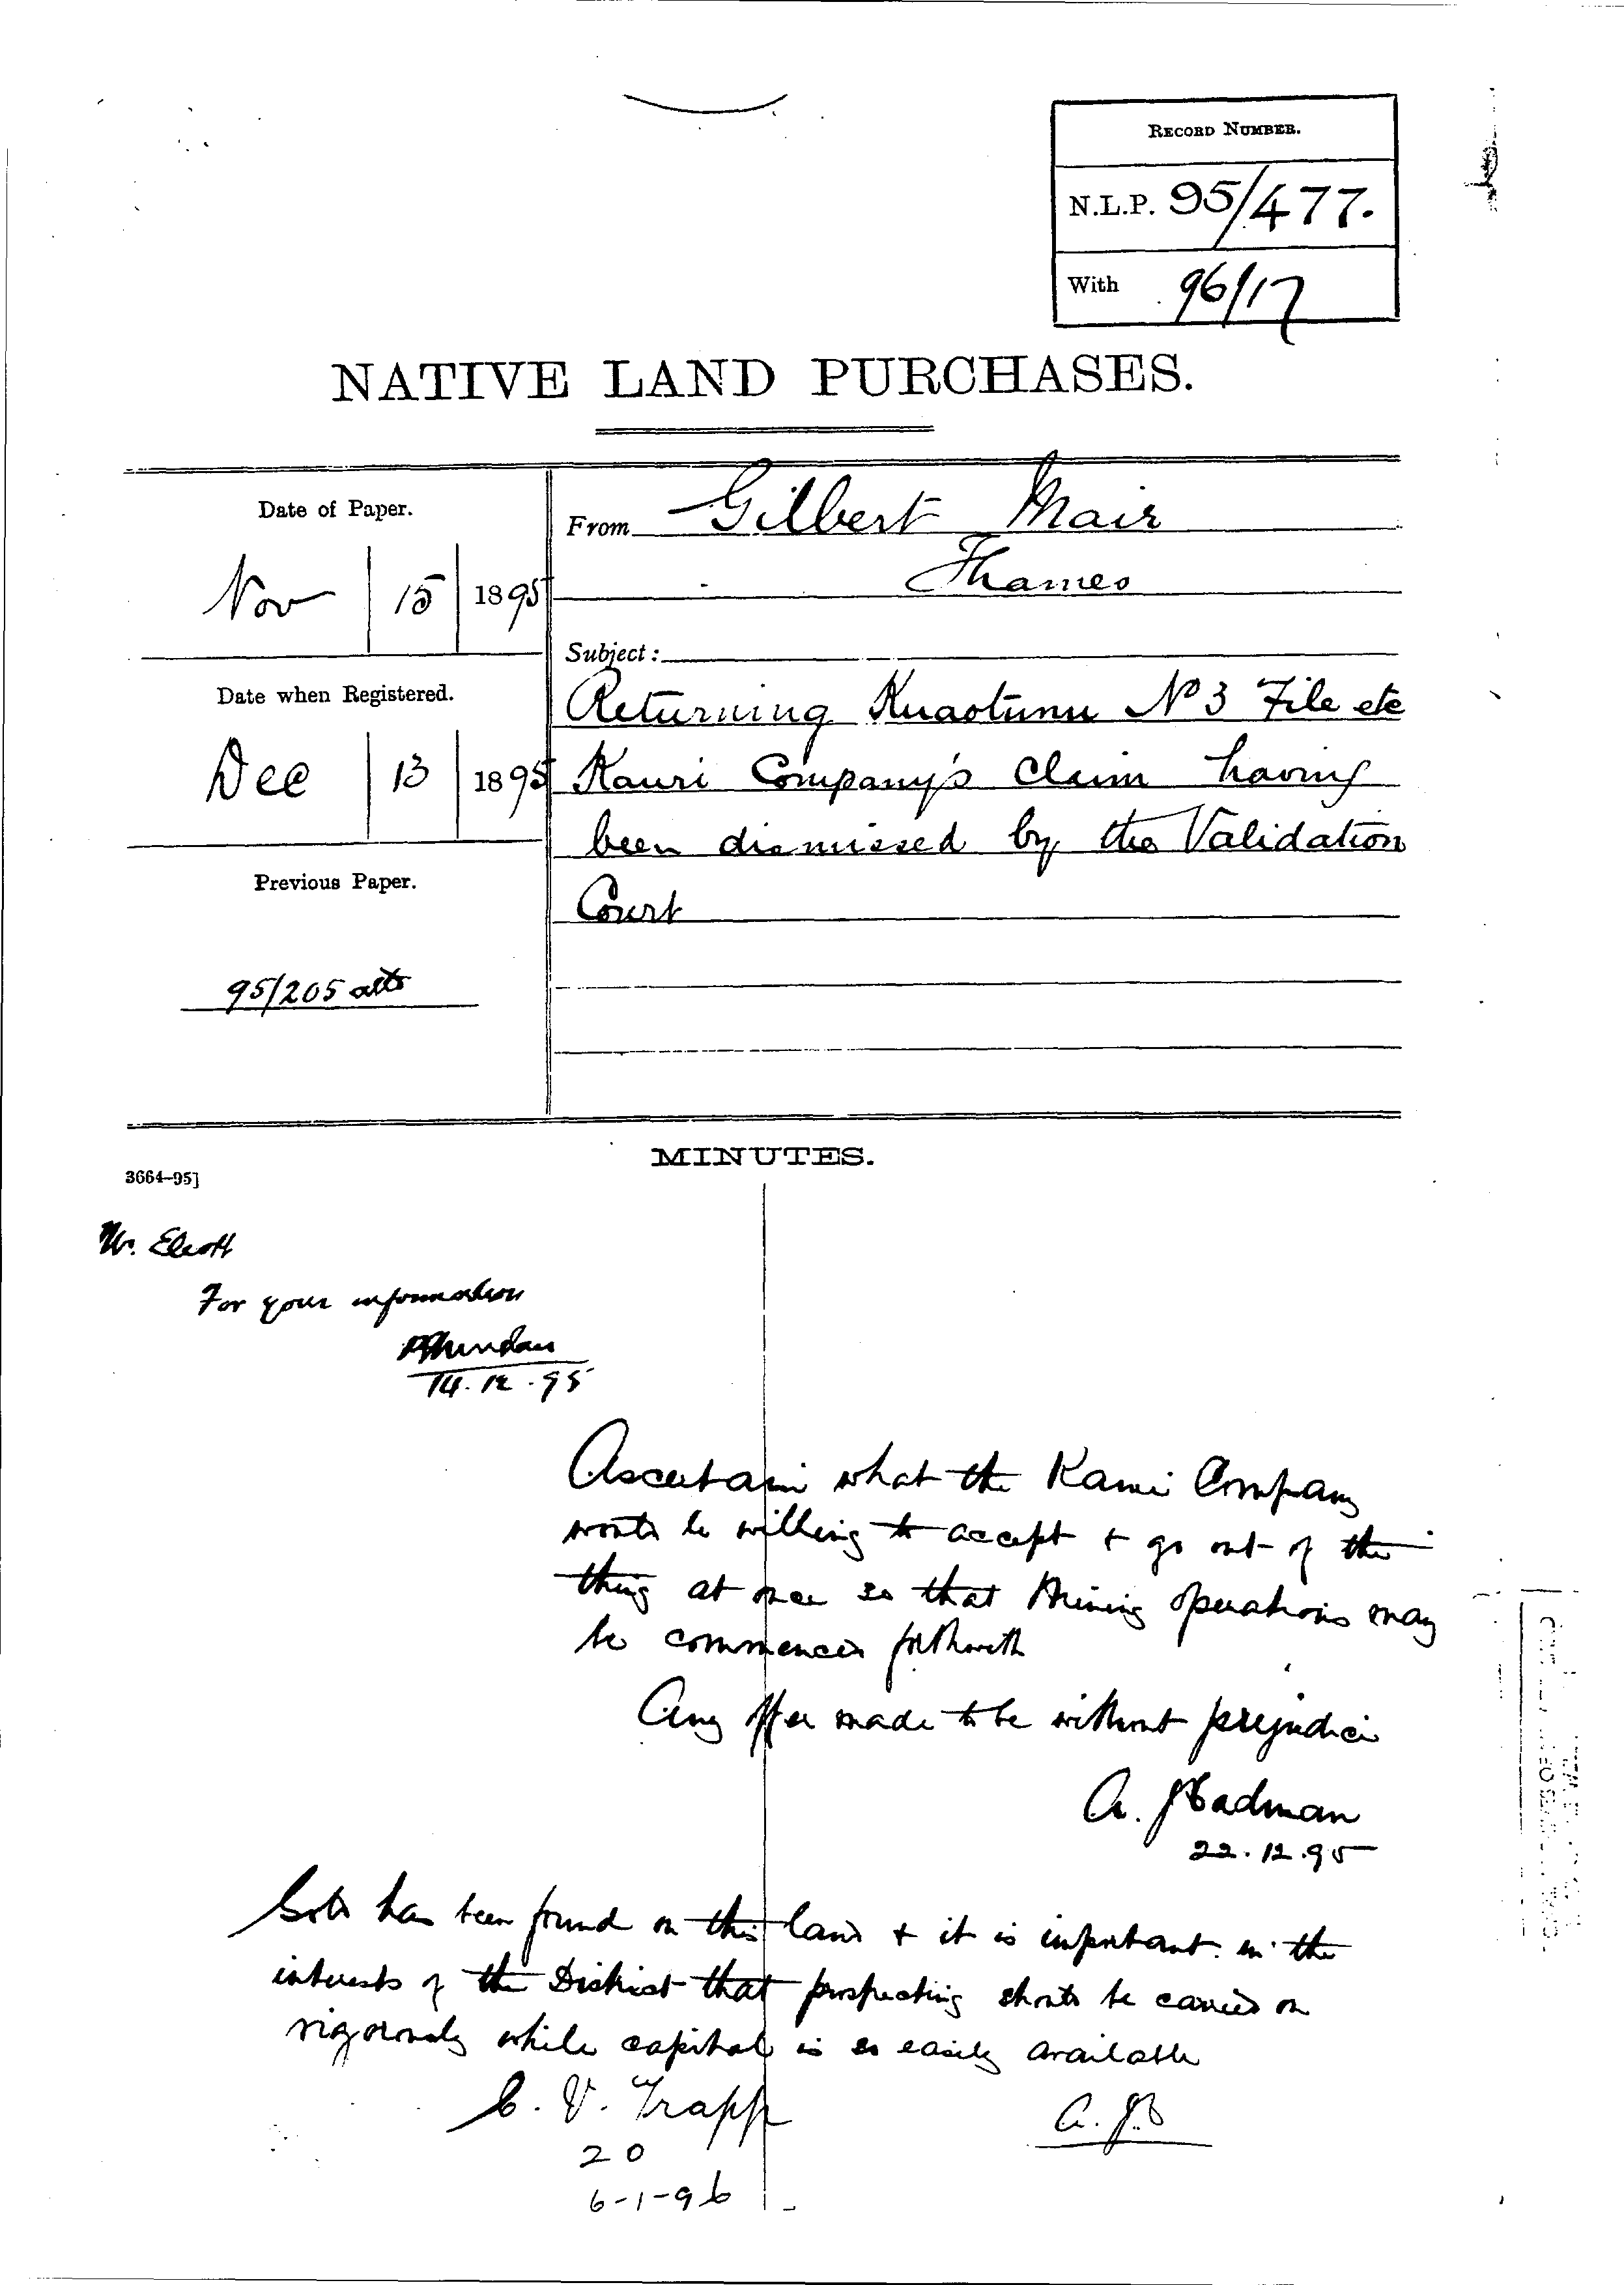 RECORD NUMBER.
N.L.P. 95/477.
With 96/17
NATIVE LAND PURCHASES.
Date of Paper.
Nov 15 1895
Date when Registered.
Dec 13 1895
Previous Paper.
95/205 atts
From Gilbert Mair
Thames
Subject:
Returning Kuaotunu No 3 File etc
Kauri Company's Claim having
been dismissed by the Validation
Court
MINUTES.
3664-95]
Mr. Eliott
For your information
14.12.95
Ascertain what the Kauri Company
would be willing to accept + go out of the
thing at once so that Mining operations may
be commenced forthwith
Any offer made to be without prejudice
A. J Cadman
22.12.95
Gold has been found on this land + it is important in the
interests of the District that prospecting should be carried on
vigorously while capital is so easily available
A.J.C
C. V. Trapp
20
6-1-96